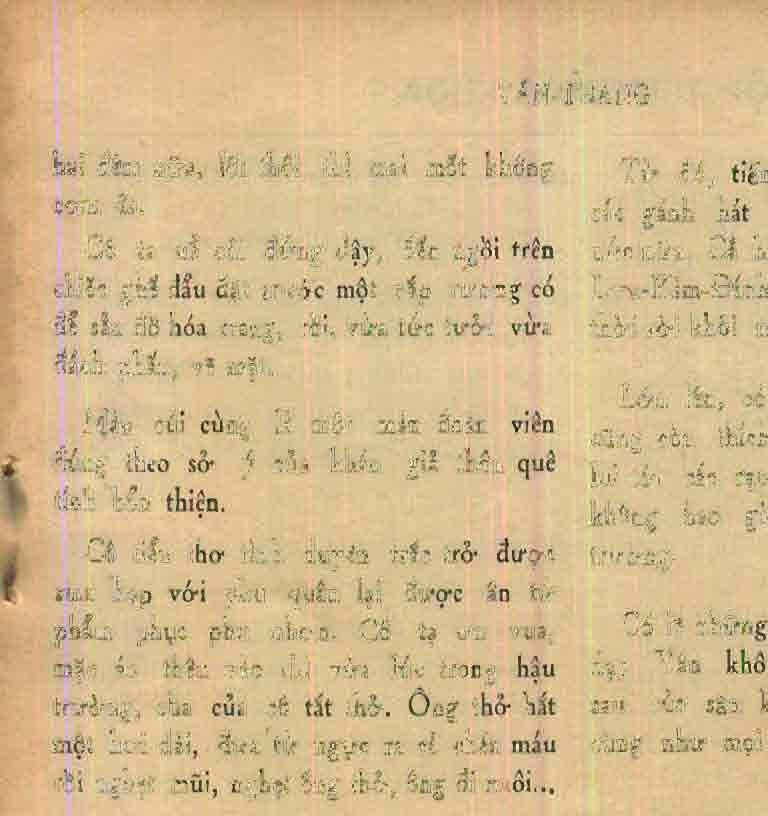 VĂN-PHANG
hai đêm nữa, lôi thôi thì mai mốt không
cơm ăn.
Cô ta uể oải đứng dậy, đến ngồi trên
chiếc ghế đẩu đặt trước một gương có
để sẵn đồ hóa trang, rồi, vừa tức tưởi vừa
đánh phấn, vẽ mặt.
Màn cúi cùng là một màn đoàn viên
đúng theo sở ý của khán giả thôn quê
tính bổn thiện.
Cô đẩu thơ tình duyên trắc trở được
sum họp với phu quân lại được ân tứ
phẩm phục phu nhơn. Cô tạ ơn vua,
mặc áo thêu vào thì vừa lúc trong hậu
trường, cha của cô tắt thở. Ông thở hắt
một hơi dài, đưa từ ngực ra cả chén máu
rồi nghẹt mũi, nghẹt ống thở, ông đi xuôi...
Từ đó, tiến
các gánh hát
nữa. Cả
Long-Kim-Đính
thời rời khỏi
Lớn lên, cô
cũng còn thích
lui tới các rạp
không bao giờ
trương.
Có lẽ những
dạy Vân khô
sau của sân k
cũng như mọi